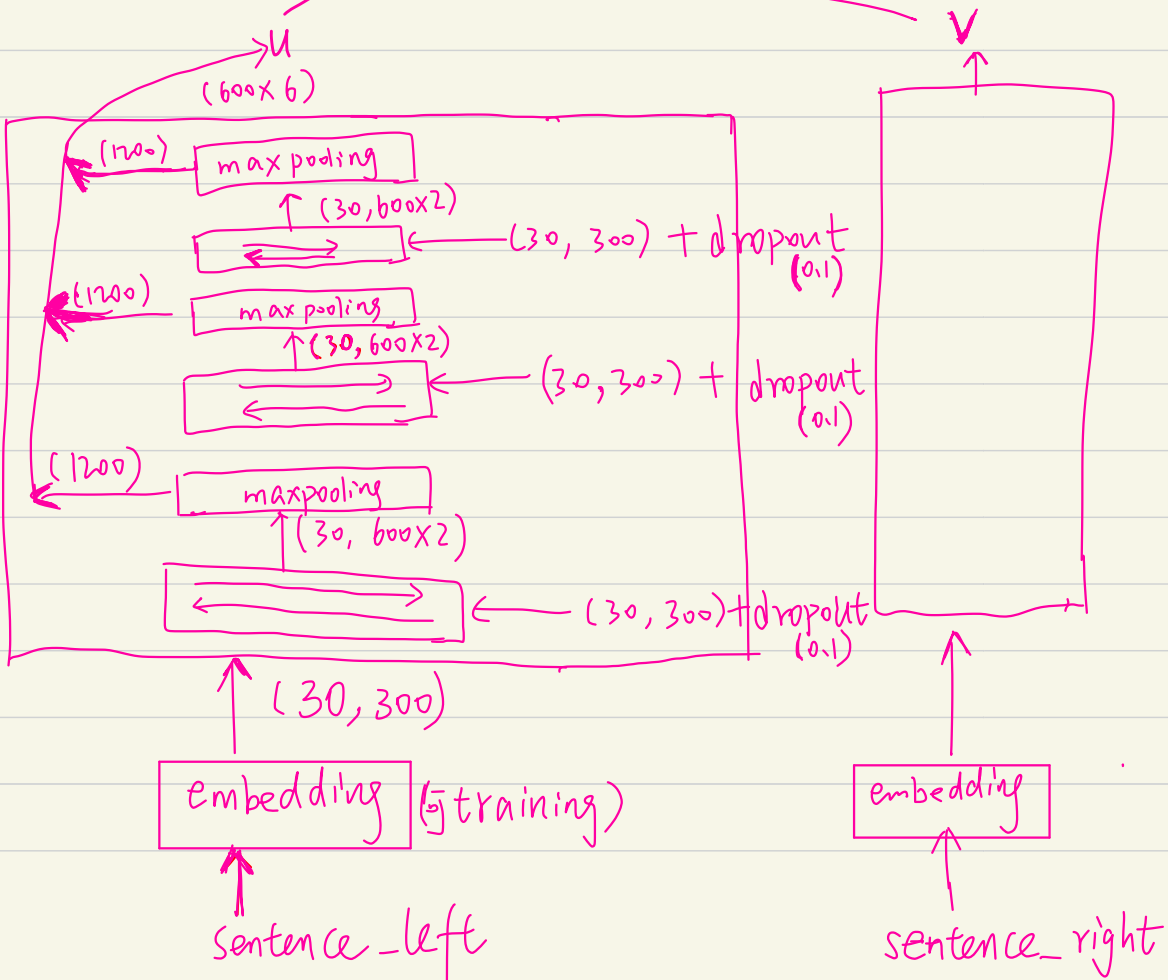 u
V
(600×6)
(1200)
maxpooling
(30,600×2)
(30, 300) + dropout
(0.1)
(1200)
maxpooling
(30,600×2)
(30,300) + dropout
(0.1)
(1200)
maxpooling
(30, 600×2)
(30,300)+dropout
(0.1)
(30,300)
embedding
training)
embedding
sentence_left
sentence_right